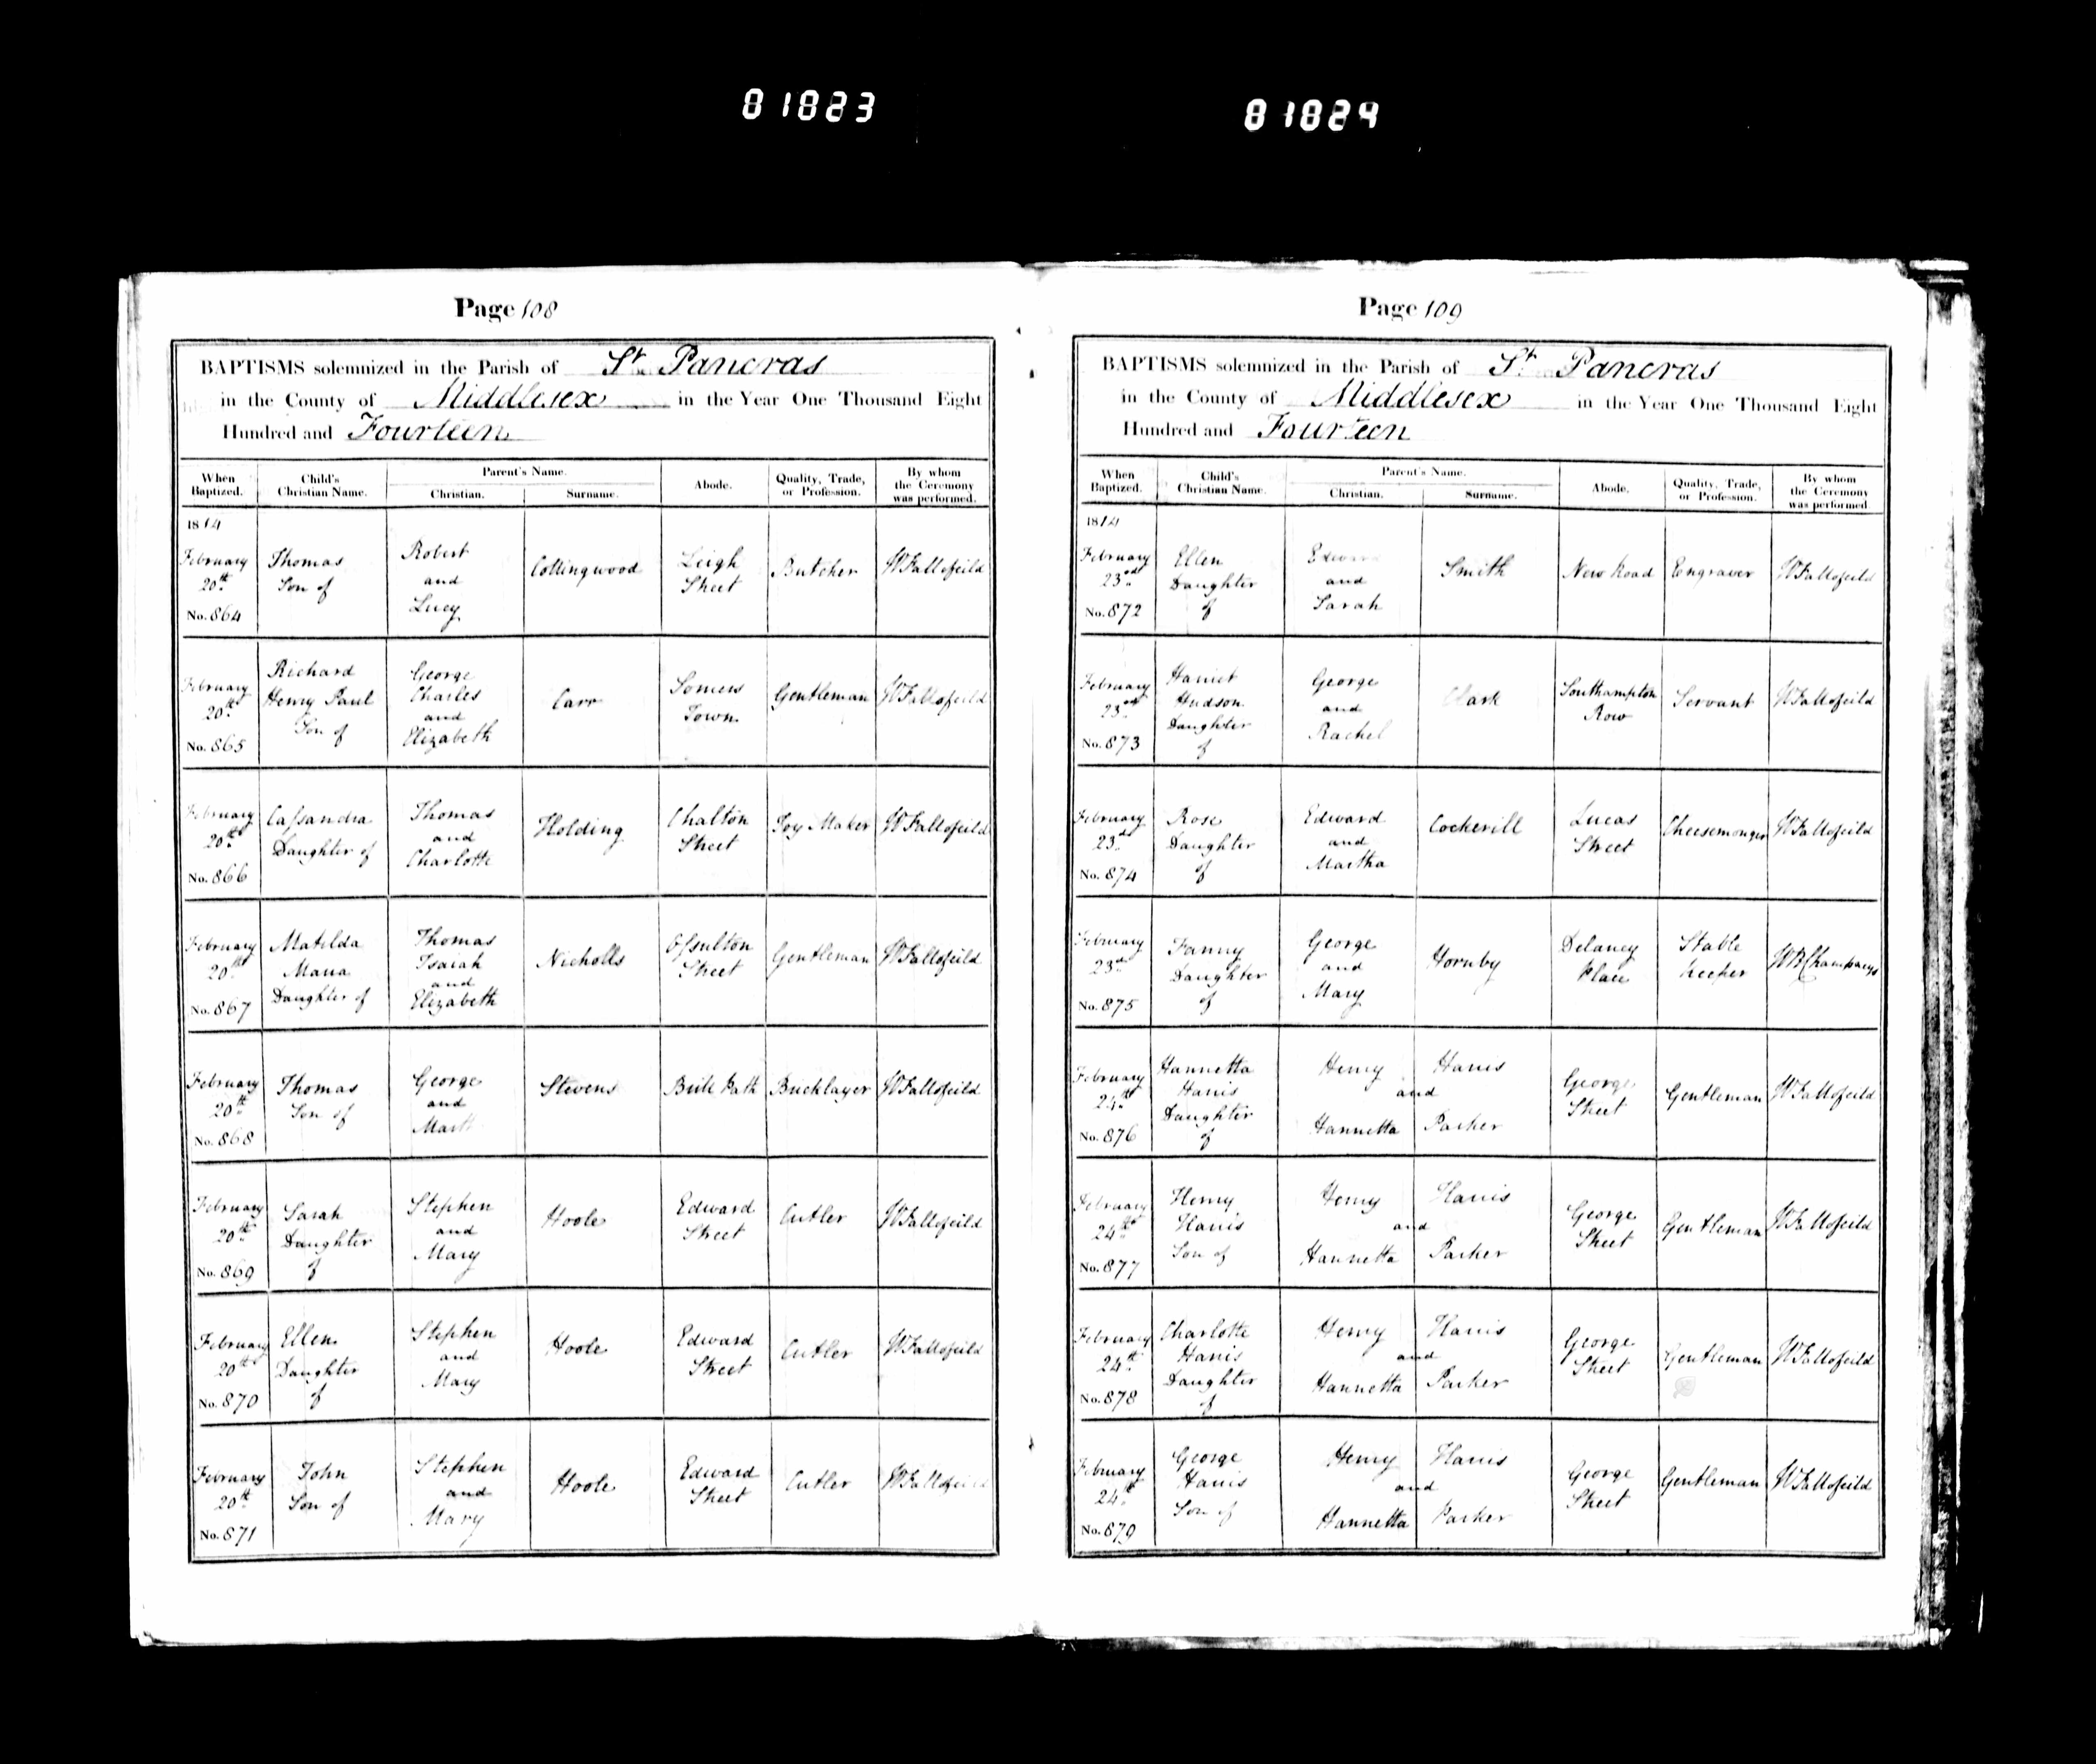 81823
81824
Page 108
BAPTISMS solemnized in the Parish of St Pancras
in the County of Middlesex in the Year One Thousand Eight
Hundred and Fourteen
When Baptized.
Child's Christian Name.
Parent's Name.
Christian.
Surname.
Abode.
Quality, Trade, or Profession.
By whom the Ceremony was performed.
1814
February 20th No. 864
Thomas Son of
Robert and Lucy
Collingwood
Leigh Street
Butcher
W Fallofeild
February 20th No. 865
Richard Henry Paul Son of
George Charles and Elizabeth
Carr
Somers Town
Gentleman
W Fallofeild
February 20th No. 866
Caſsandra Daughter of
Thomas and Charlotte
Holding
Chalton Street
Toy Maker
W Fallofeild
February 20th No. 867
Matilda Maria Daughter of
Thomas Isaiah and Elizabeth
Nicholls
Oſsulton Street
Gentleman
W Fallofeild
February 20th No. 868
Thomas Son of
George and
Stevens
Path
Bricklayer
W Fallofeild
February 20th No. 869
Sarah Daughter of
Stephen and Mary
Hoole
Edward Street
Cutler
W Fallofeild
February 20th No. 870
Ellen Daughter of
Stephen and Mary
Hoole
Edward Street
Cutler
W Fallofeild
February 20th No. 871
John Son of
Stephen and Mary
Hoole
Edward Street
Cutler
W Fallofeild
Page 109
BAPTISMS solemnized in the Parish of St Pancras
in the County of Middlesex in the Year One Thousand Eight
Hundred and Fourteen
When Baptized.
Child's Christian Name.
Parent's Name.
Christian.
Surname.
Abode.
Quality, Trade, or Profession.
By whom the Ceremony was performed
1814
February 23rd No. 872
Ellen Daughter of
Edward and Sarah
Smith
New Road
Engraver
W Fallofeild
February 23rd No. 873
Harriet Hudson Daughter of
George and Rachel
Clark
Southampton Row
Servant
W Fallofeild
February 23d No. 874
Rose Daughter of
Edward and Martha
Cockerill
Lucas Street
Cheesemonger
W Fallofeild
February 23d No. 875
Fanny Daughter of
George and Mary
Hornby
Delancy Place
Stable keeper
W B Champneys
February 24th No. 876
Harriretta Harris Daughter of
Henry Harris and Harriretta Parker
George Street
Gentleman
W Fallofeild
February 24th No. 877
Henry Harris Son of
Henry Harris and Harriretta Parker
George Street
Gentleman
W Fallofeild
February 24th No. 878
Charlotte Harris Daughter of
Henry Harris and Harriretta Parker
George Street
Gentleman
W Fallofeild
February 24th No. 879
George Harris Son of
Henry Harris and Harriretta Parker
George Street
Gentleman
W Fallofeild